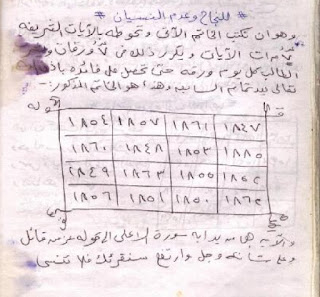 للنجاح وعدم النسيان
وهو ان تكتب الخاتم الآتى وتحوطه بالآيات الشريفه
مرات الآيات ويكرر ذلك فى ٧ ورقات
الطالب كل يوم ورقه حتى تحصل على فائده
تعالى بعد تمام السابعه وهذا هو الخاتم المذكور :-
قوله
١٨٤٧ ١٨٦١ ١٨٥٧ ١٨٥٤
١٨٨٥ ١٨٥٣ ١٨٤٨ ١٨٦٠
١٨٥٢ ١٨٥٥ ١٨٦٣ ١٨٤٩
١٨٦٢ ١٨٥٠ ١٨٥١ ١٨٥٦
والآيه هى من بدايه سورة الاعلى الى قوله عز من قائل
وعلى شأنه وجل وارتفع سنقرئك فلا تنسى